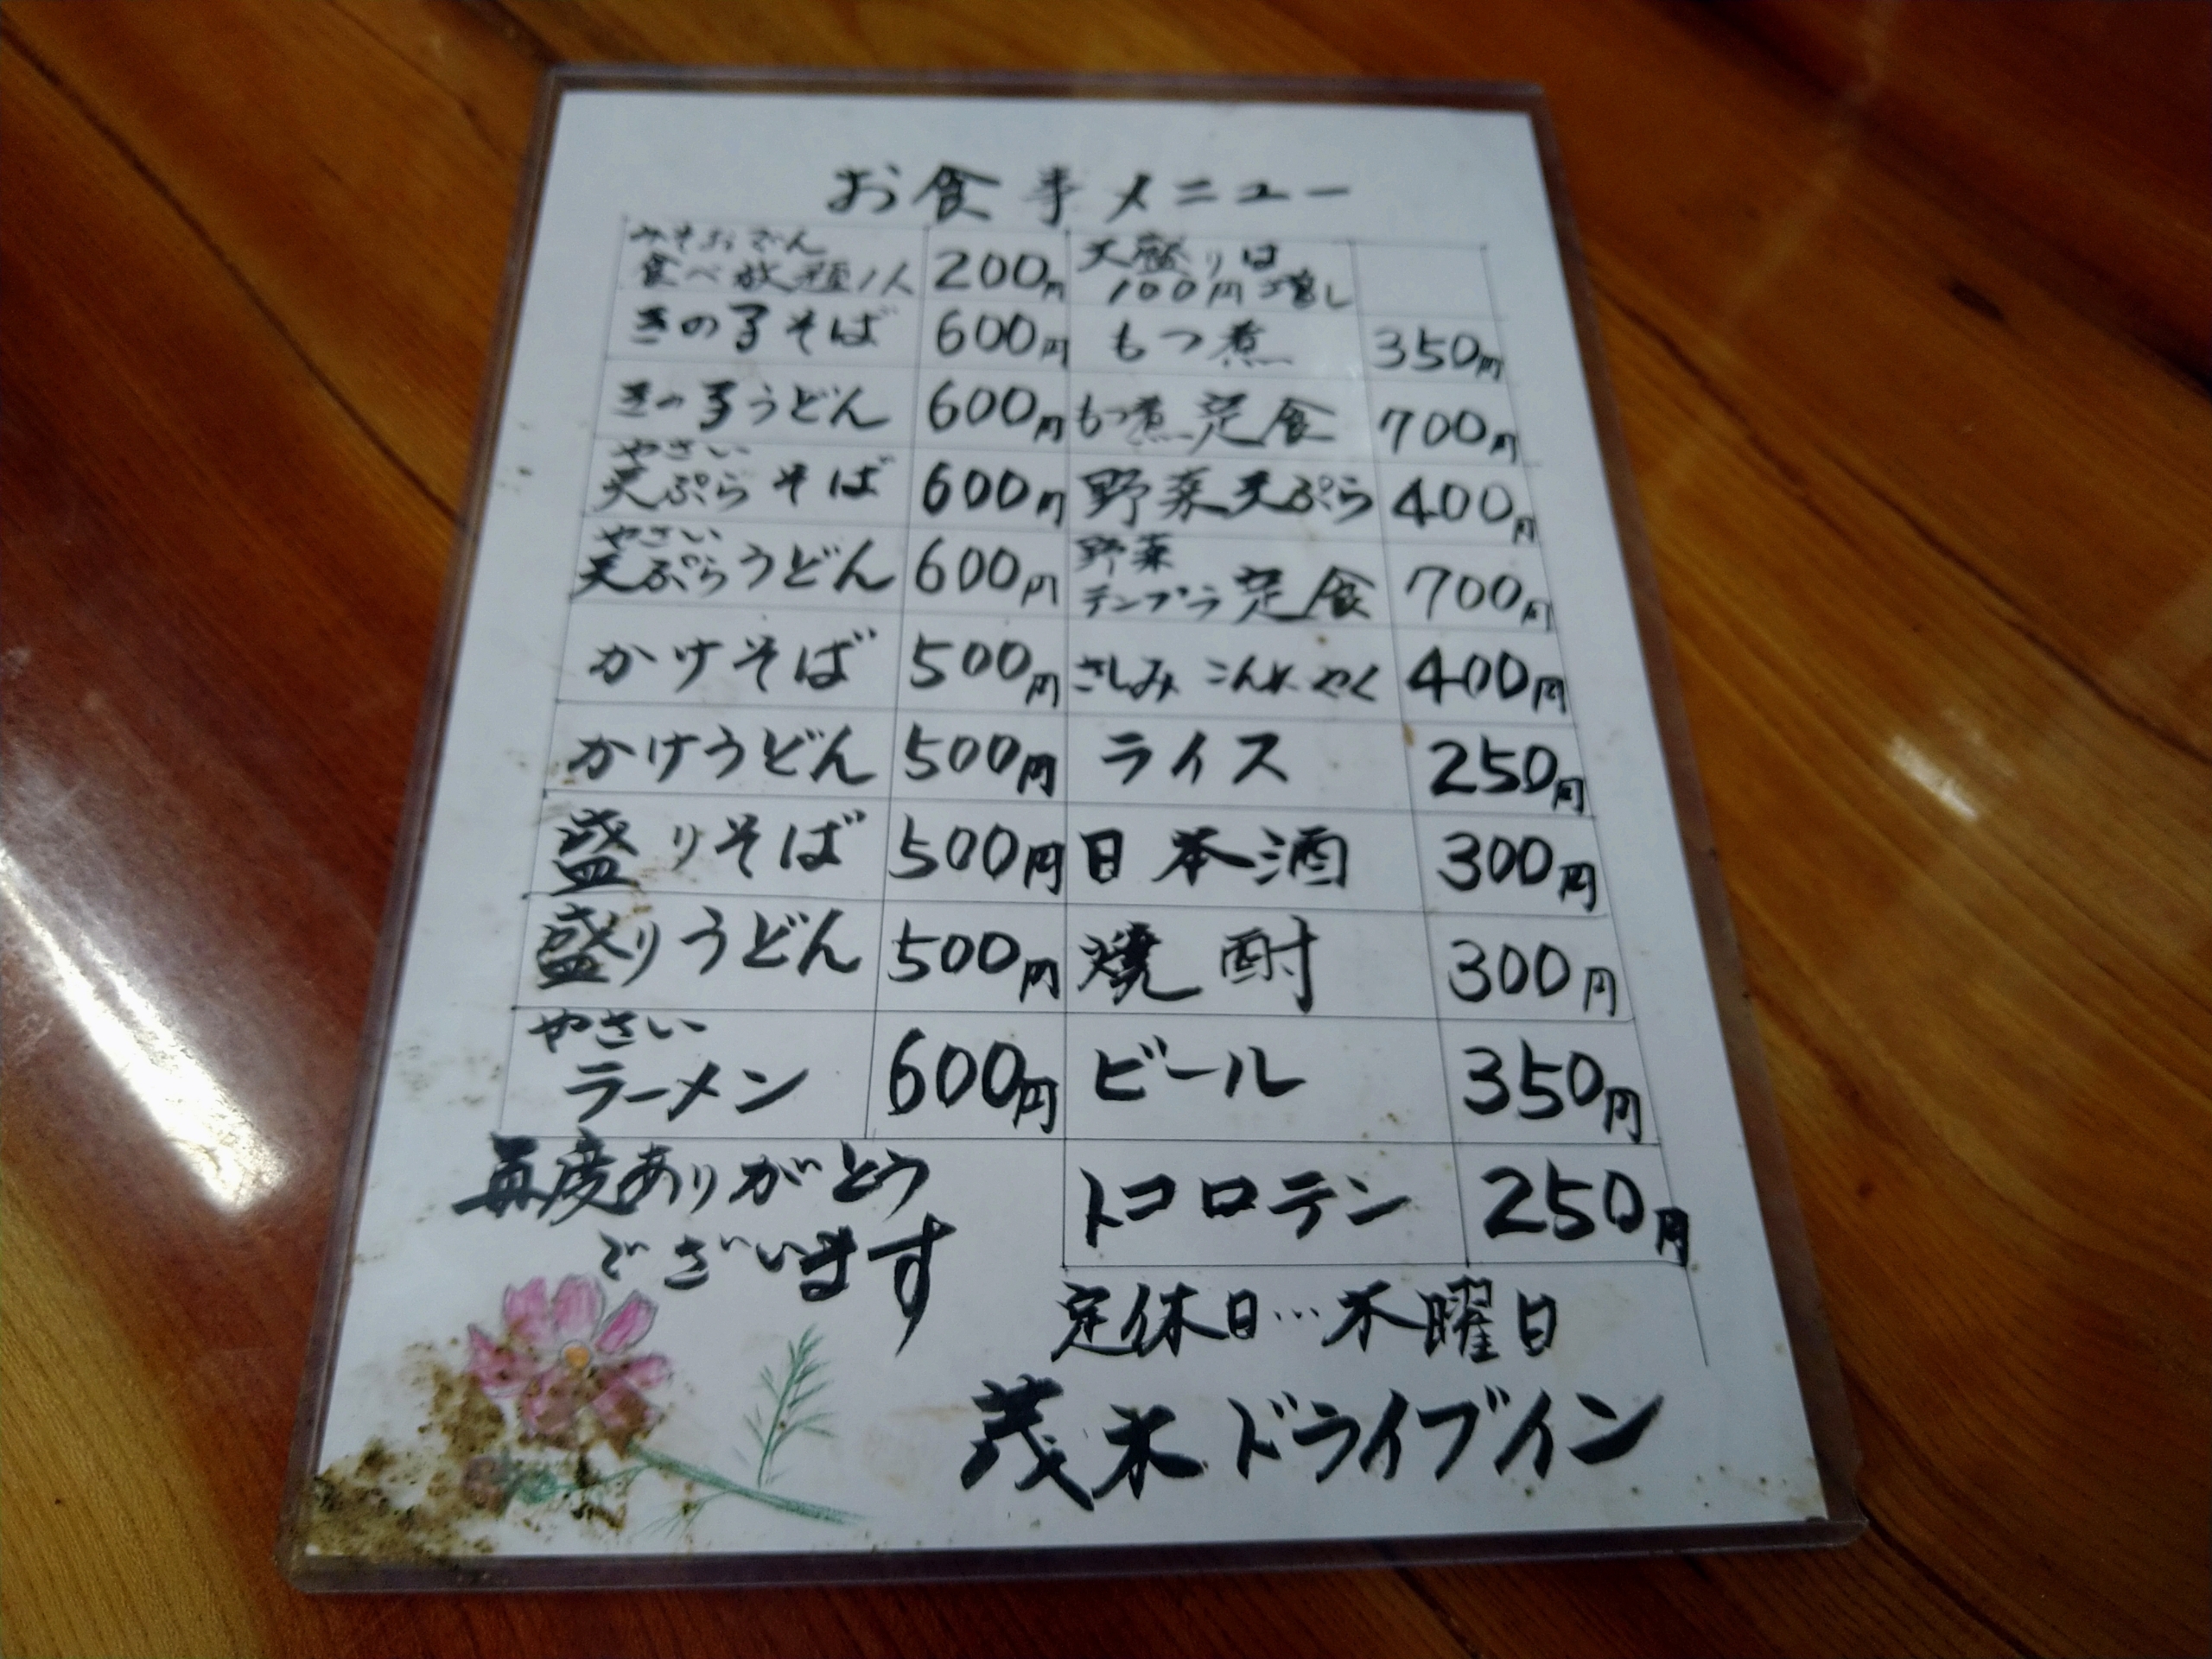 お食事メニュー
みそおでん
食べ放題1人 200円
大盛りは
100円増し
きの子そば 600円
もつ煮 350円
きの子うどん 600円
もつ煮定食 700円
やさい
天ぷらそば 600円
野菜天ぷら 400円
やさい
天ぷらうどん 600円
野菜
テンプラ定食 700円
かけそば 500円
さしみこんにゃく 400円
かけうどん 500円
ライス 250円
盛りそば 500円
日本酒 300円
盛りうどん 500円
焼酎 300円
やさい
ラーメン 600円
ビール 350円
トコロテン 250円
毎度ありがとう
ございます
定休日…木曜日
茂木ドライブイン